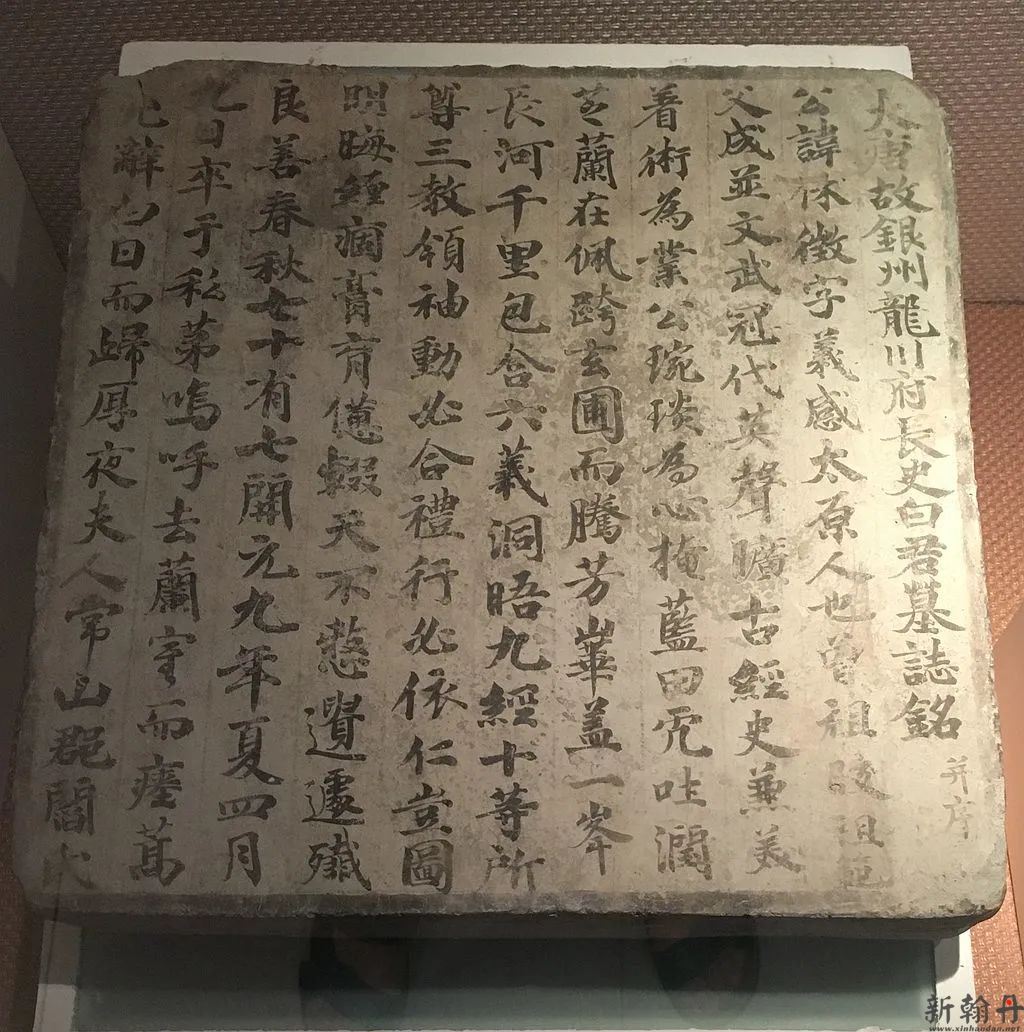 大唐故銀州龍川府長史白君墓誌銘 并序
公諱休徵字義感太原人也曾祖陵祖範
父成並文武冠代英聲曠古經史兼美
著術為業公琬琰為心掩藍田而吐潤
芝蘭在佩跨玄圃而騰芳崋蓋一岑
長河千里包含六義洞晤九經十等所
尊三教領袖動必合禮行必依仁豈圖
明晦纏痾膏肓僊輟天不憖遺遽殲
良善春秋七十有七開元九年夏四月
九日卒于私第嗚呼去蘭室而瘞蒿
辭白日而歸厚夜夫人常山郡閻
新翰丹
www.xinhandan.net